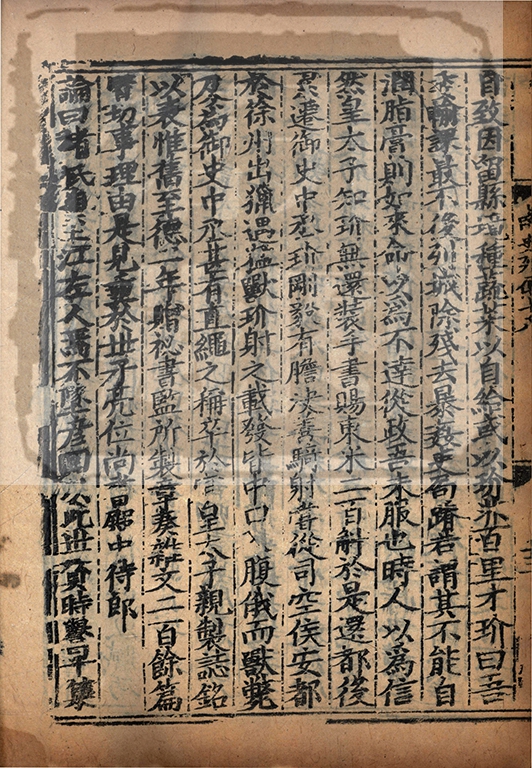 自致因留縣境種蔬菜以自給或以玠非百里才玠曰吾
委輸課最不後列城除殘去暴姦吏句蹐若謂其不能自
潤脂膏則如來命以爲不達從政吾未服也時人以爲信
然皇太子知玠無還裝手書賜粟米二百斛於是還都後
累遷御史中丞玠剛毅有膽决善騎射嘗從司空侯安都
於徐州出獵遇猛獸玠射之載發皆中口入腹俄而獸斃
及爲御史中丞甚有直繩之稱卒於官皇太子親製誌銘
以表惟舊至德二年贈祕書監所製章奏雜文二百餘篇
皆切事理由是見重於世子亮位尚書殿中侍郎
論曰褚氏自至江左人焉不墜彦回以此世資時譽早集